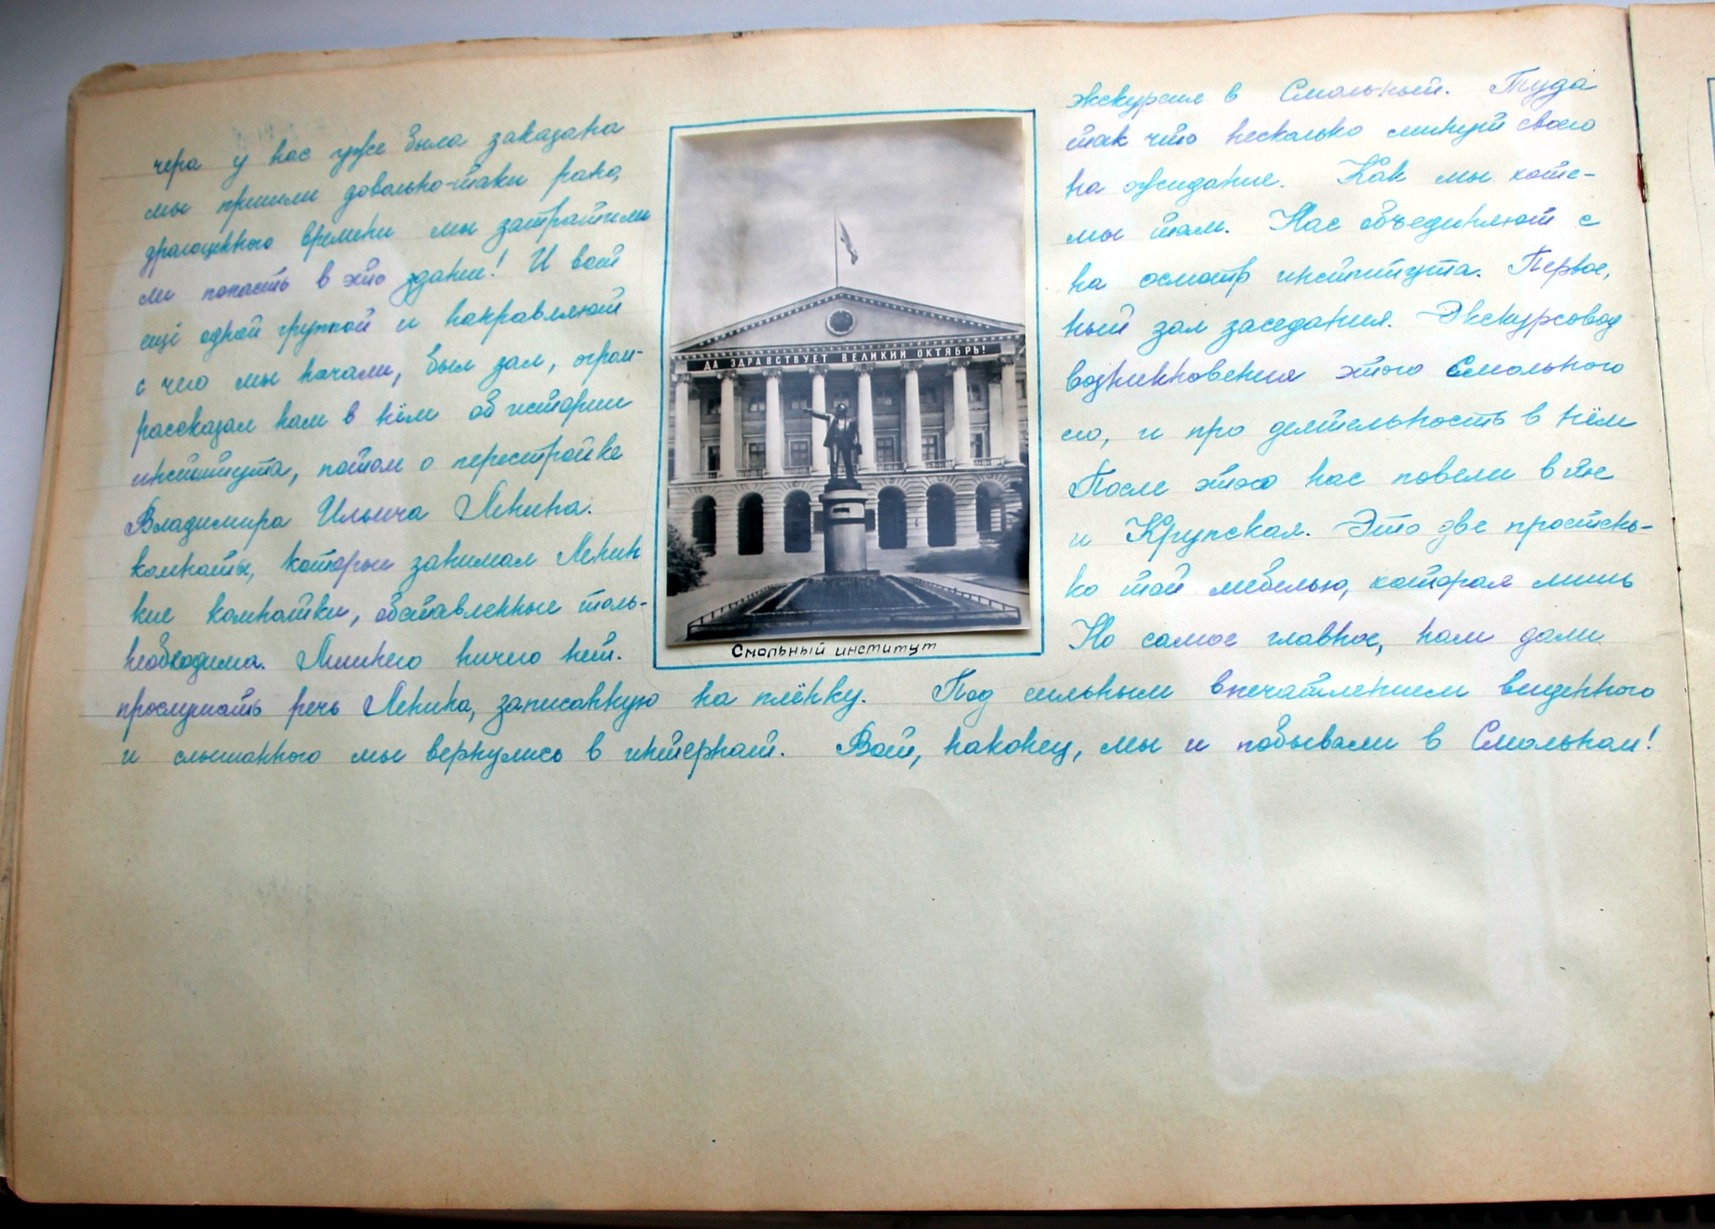 чера у нас уже была заказана экскурсия в Смольный. Туда
мы пришли довольно-таки рано, так что несколько минут своего
драгоценного времени мы затратили на ожидание. Как мы хоте-
ли попасть в это здание! И вот мы там. Нас объединяют с
ещё одной группой и направляют на осмотр института. Первое,
с чего мы начали, был зал, огром- ный зал заседания. Экскурсовод
рассказал нам в нём об истории возникновения этого Смольного
института, потом о перестройке его, и про деятельность в нём
Владимира Ильича Ленина. После этого нас повели в те
комнаты, которые занимал Ленин и Крупская. Это две простень-
кие комнатки, обставленные толь- ко той мебелью, которая лишь
необходима. Лишнего ничего нет. Но самое главное, нам дали
прослушать речь Ленина, записанную на плёнку. Под сильным впечатлением виденного
и слышанного мы вернулись в интернат. Вот, наконец, мы и побывали в Смольном!
ДА ЗДРАВСТВУЕТ ВЕЛИКИЙ ОКТЯБРЬ!
Смольный институт